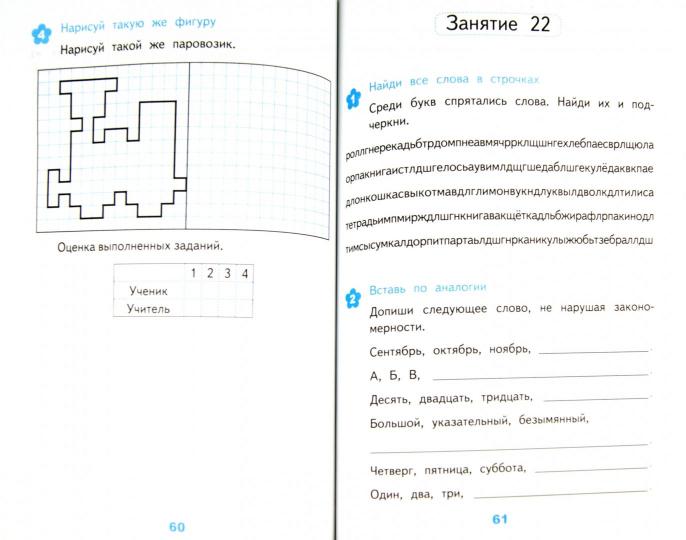 4
Нарисуй такую же фигуру
Нарисуй такой же паровозик.
Оценка выполненных заданий.
1 2 3 4
Ученик
Учитель
60
Занятие 22
1
Найди все слова в строчках
Среди букв спрятались слова. Найди их и под-
черкни.
роллгнерекадьбтрдомпнеавмячрркл­щшнгехлебпаесврлщюла
орпакнигаистлдшгелосьаувимлдщгшедаблшгекулёдаквкпае
длонкошкасвыкотмавдлглимонвукндлуквылдволкдлтилиса
тетрадьимпмирждлшгнкнигавакщёткадльбжирафлрпакинодл
тимсысумкалдорпитпартаьлдшгнрканикулыжюбьтзебралдш
2
Вставь по аналогии
Допиши следующее слово, не нарушая законо-
мерности.
Сентябрь, октябрь, ноябрь,
А, Б, В,
Десять, двадцать, тридцать,
Большой, указательный, безымянный,
Четверг, пятница, суббота,
Один, два, три,
61